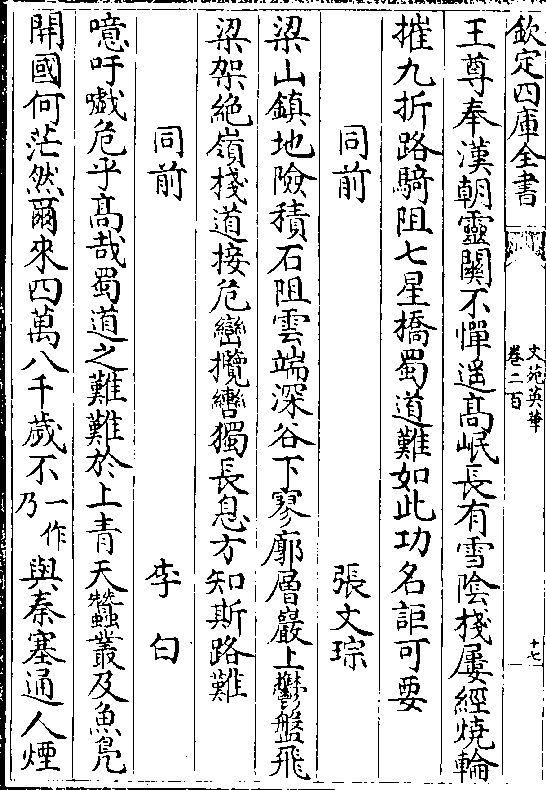 欽定四庫全書
文苑英華
卷二百
十七
王尊奉漢朝靈關不憚遥髙岷長有雪陰棧屢經燒輪
摧九折路騎阻七星橋蜀道難如此功名詎可要
同前 張文琮
梁山鎮地險積石阻雲端深谷下寥廓層巖上鬱盤飛
梁架絶嶺棧道接危巒攬轡獨長息方知斯路難
同前 李白
噫吁嚱危乎髙哉蜀道之難難於上青天蠶叢及魚鳬
開國何茫然爾來四萬八千歲不一作乃與秦塞通人煙